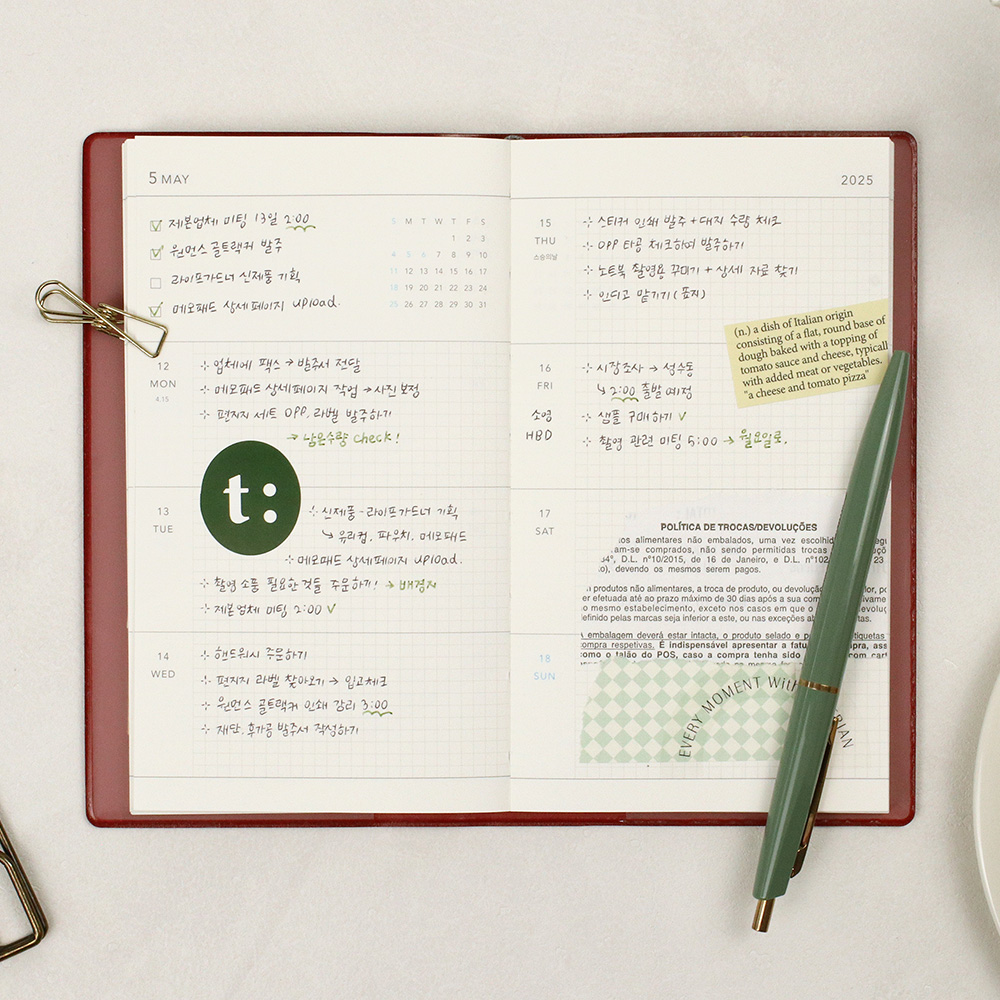 5 MAY
제본업체 미팅 13일 2:00
원먼스 골트랙커 발주
라이프가드너 신제품 기획
메모패드 상세페이지 upload.
S M T W T F S
1 2 3
4 5 6 7 8 9 10
11 12 13 14 15 16 17
18 19 20 21 22 23 24
25 26 27 28 29 30 31
12
MON
4.15
업체에 팩스 → 발주서 전달
메모패드 상세페이지 작업 → 사진보정
편지지 세트 OPP, 라벨 발주하기
→ 남은수량 check!
13
TUE
t:
신제품 - 라이프가드너 기획
↳ 유리컵, 파우치, 메모패드
메모패드 상세페이지 upload.
촬영 소품 필요한 것들 주문하기! → 배경지
제본업체 미팅 2:00 ✓
14
WED
핸드워시 주문하기
편지지 라벨 찾아오기 → 입고체크
원먼스 골트랙커 인쇄 감리 3:00
재단, 후가공 발주서 작성하기
2025
15
THU
스승의날
스티커 인쇄 발주 + 대지 수량 체크
OPP 타공 체크하여 발주하기
노트북 촬영용 꾸미기 + 상세 자료 찾기
인디고 맡기기 (표지)
(n.) a dish of Italian origin
consisting of a flat, round base of
dough baked with a topping of
tomato sauce and cheese, typicall
with added meat or vegetables.
"a cheese and tomato pizza"
16
FRI
소영
HBD
시장조사 → 성수동
↳ 2:00 출발 예정
샘플 구매하기 ✓
촬영 관련 미팅 5:00 → 월요일로.
17
SAT
POLÍTICA DE TROCAS/DEVOLUÇÕES
os alimentares não embalados, uma vez escolhid
am-se comprados, não sendo permitidas trocas
D.L. nº10/2015, de 16 de Janeiro, e D.L. nº102 23
devendo os mesmos serem pagos.
produtos não alimentares, a troca de produto, ou devolução
er efetuada até ao prazo máximo de 30 dias após a sua com
o mesmo estabelecimento, exceto nos casos em que o
efinido pelas marcas seja inferior a este, ou nas exceções
A embalagem deverá estar intacta, o produto selado e etiquetas
compra respetivas. É indispensável apresentar a fatu
como o talão do POS, caso a compra tenha sido com
18
SUN
EVERY MOMENT With